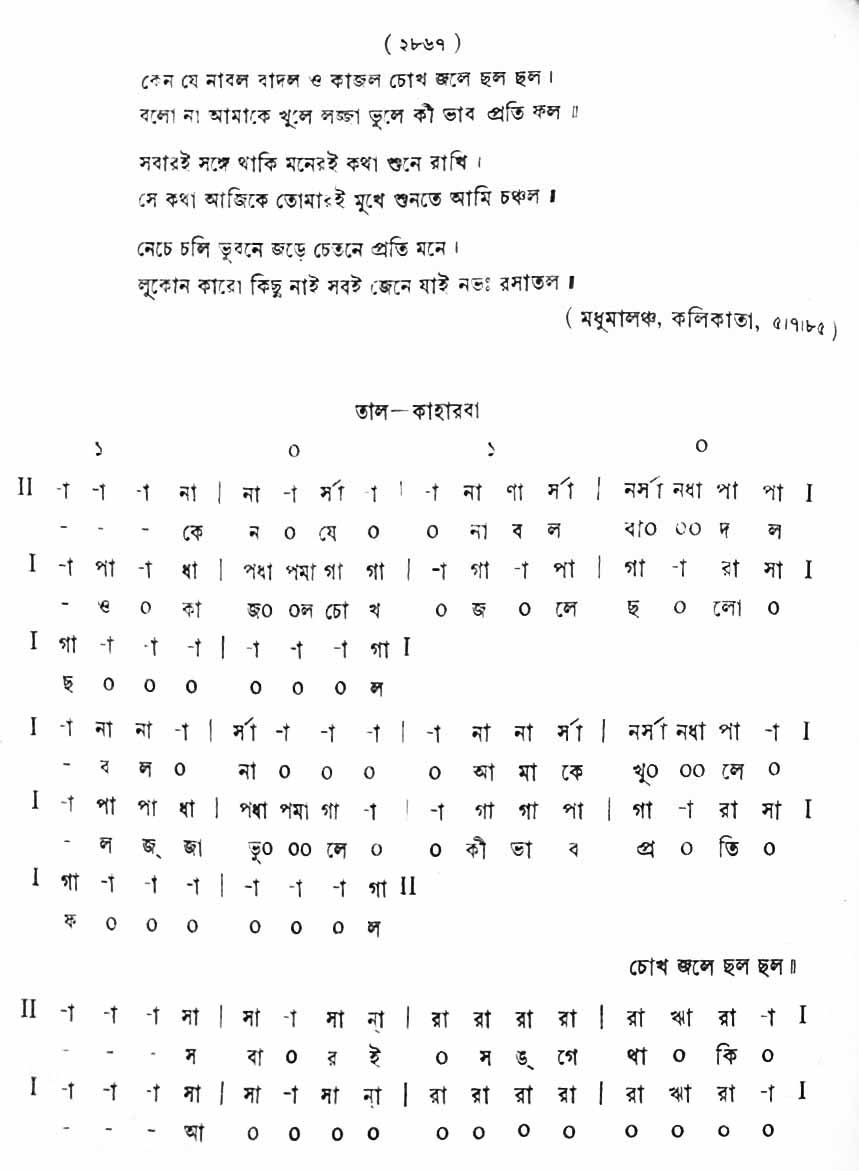 ( ২৮৬৭ )
কেন যে নাবল বাদল ও কাজল চোখ জলে ছল ছল ।
বলো না আমাকে খুলে লজ্জা ভুলে কী ভাব প্রতি ফল ॥
সবারই সঙ্গে থাকি মনেরই কথা শুনে রাখি ।
সে কথা আজিকে তোমারই মুখে শুনতে আমি চঞ্চল ॥
নেচে চলি ভুবনে জড়ে চেতনে প্রতি মনে ।
লুকোন কারো কিছু নাই সবই জেনে যাই নভঃ রসাতল ॥
( মধুমালঞ্চ, কলিকাতা, ৫।৭।৮৫ )
তাল—কাহারবা
১ ০ ১ ০
II -া -া -া না | না -া র্সা -া | -া না ণা র্সা | নর্সা নধা পা পা I
- - - কে ন ০ যে ০ ০ না ব ল বা০ ০০ দ ল
I -া পা -া ধা | পধা পমা গা গা | -া গা -া পা | গা -া রা সা I
- ও ০ কা জ০ ০ল চো খ ০ জ ০ লে ছ ০ লো ০
I গা -া -া -া | -া -া -া গা I
ছ ০ ০ ০ ০ ০ ০ ল
I -া না না -া | র্সা -া -া -া | -া না না র্সা | নর্সা নধা পা -া I
- ব ল ০ না ০ ০ ০ ০ আ মা কে খু০ ০০ লে ০
I -া পা পা ধা | পধা পমা গা -া | -া গা গা পা | গা -া রা সা I
- ল জ্ জা ভু০ ০০ লে ০ ০ কী ভা ব প্র ০ তি ০
I গা -া -া -া | -া -া -া গা II
ফ ০ ০ ০ ০ ০ ০ ল
চোখ জলে ছল ছল॥
II -া -া -া সা | সা -া সা ন্া | রা রা রা রা | রা ঋা রা -া I
- - - স বা ০ র ই ০ স ঙ্ গে থা ০ কি ০
I -া -া -া সা | সা -া সা ন্া | রা রা রা রা | রা ঋা রা -া I
- - - আ ০ ০ ০ ০ ০ ০ ০ ০ ০ ০ ০ ০